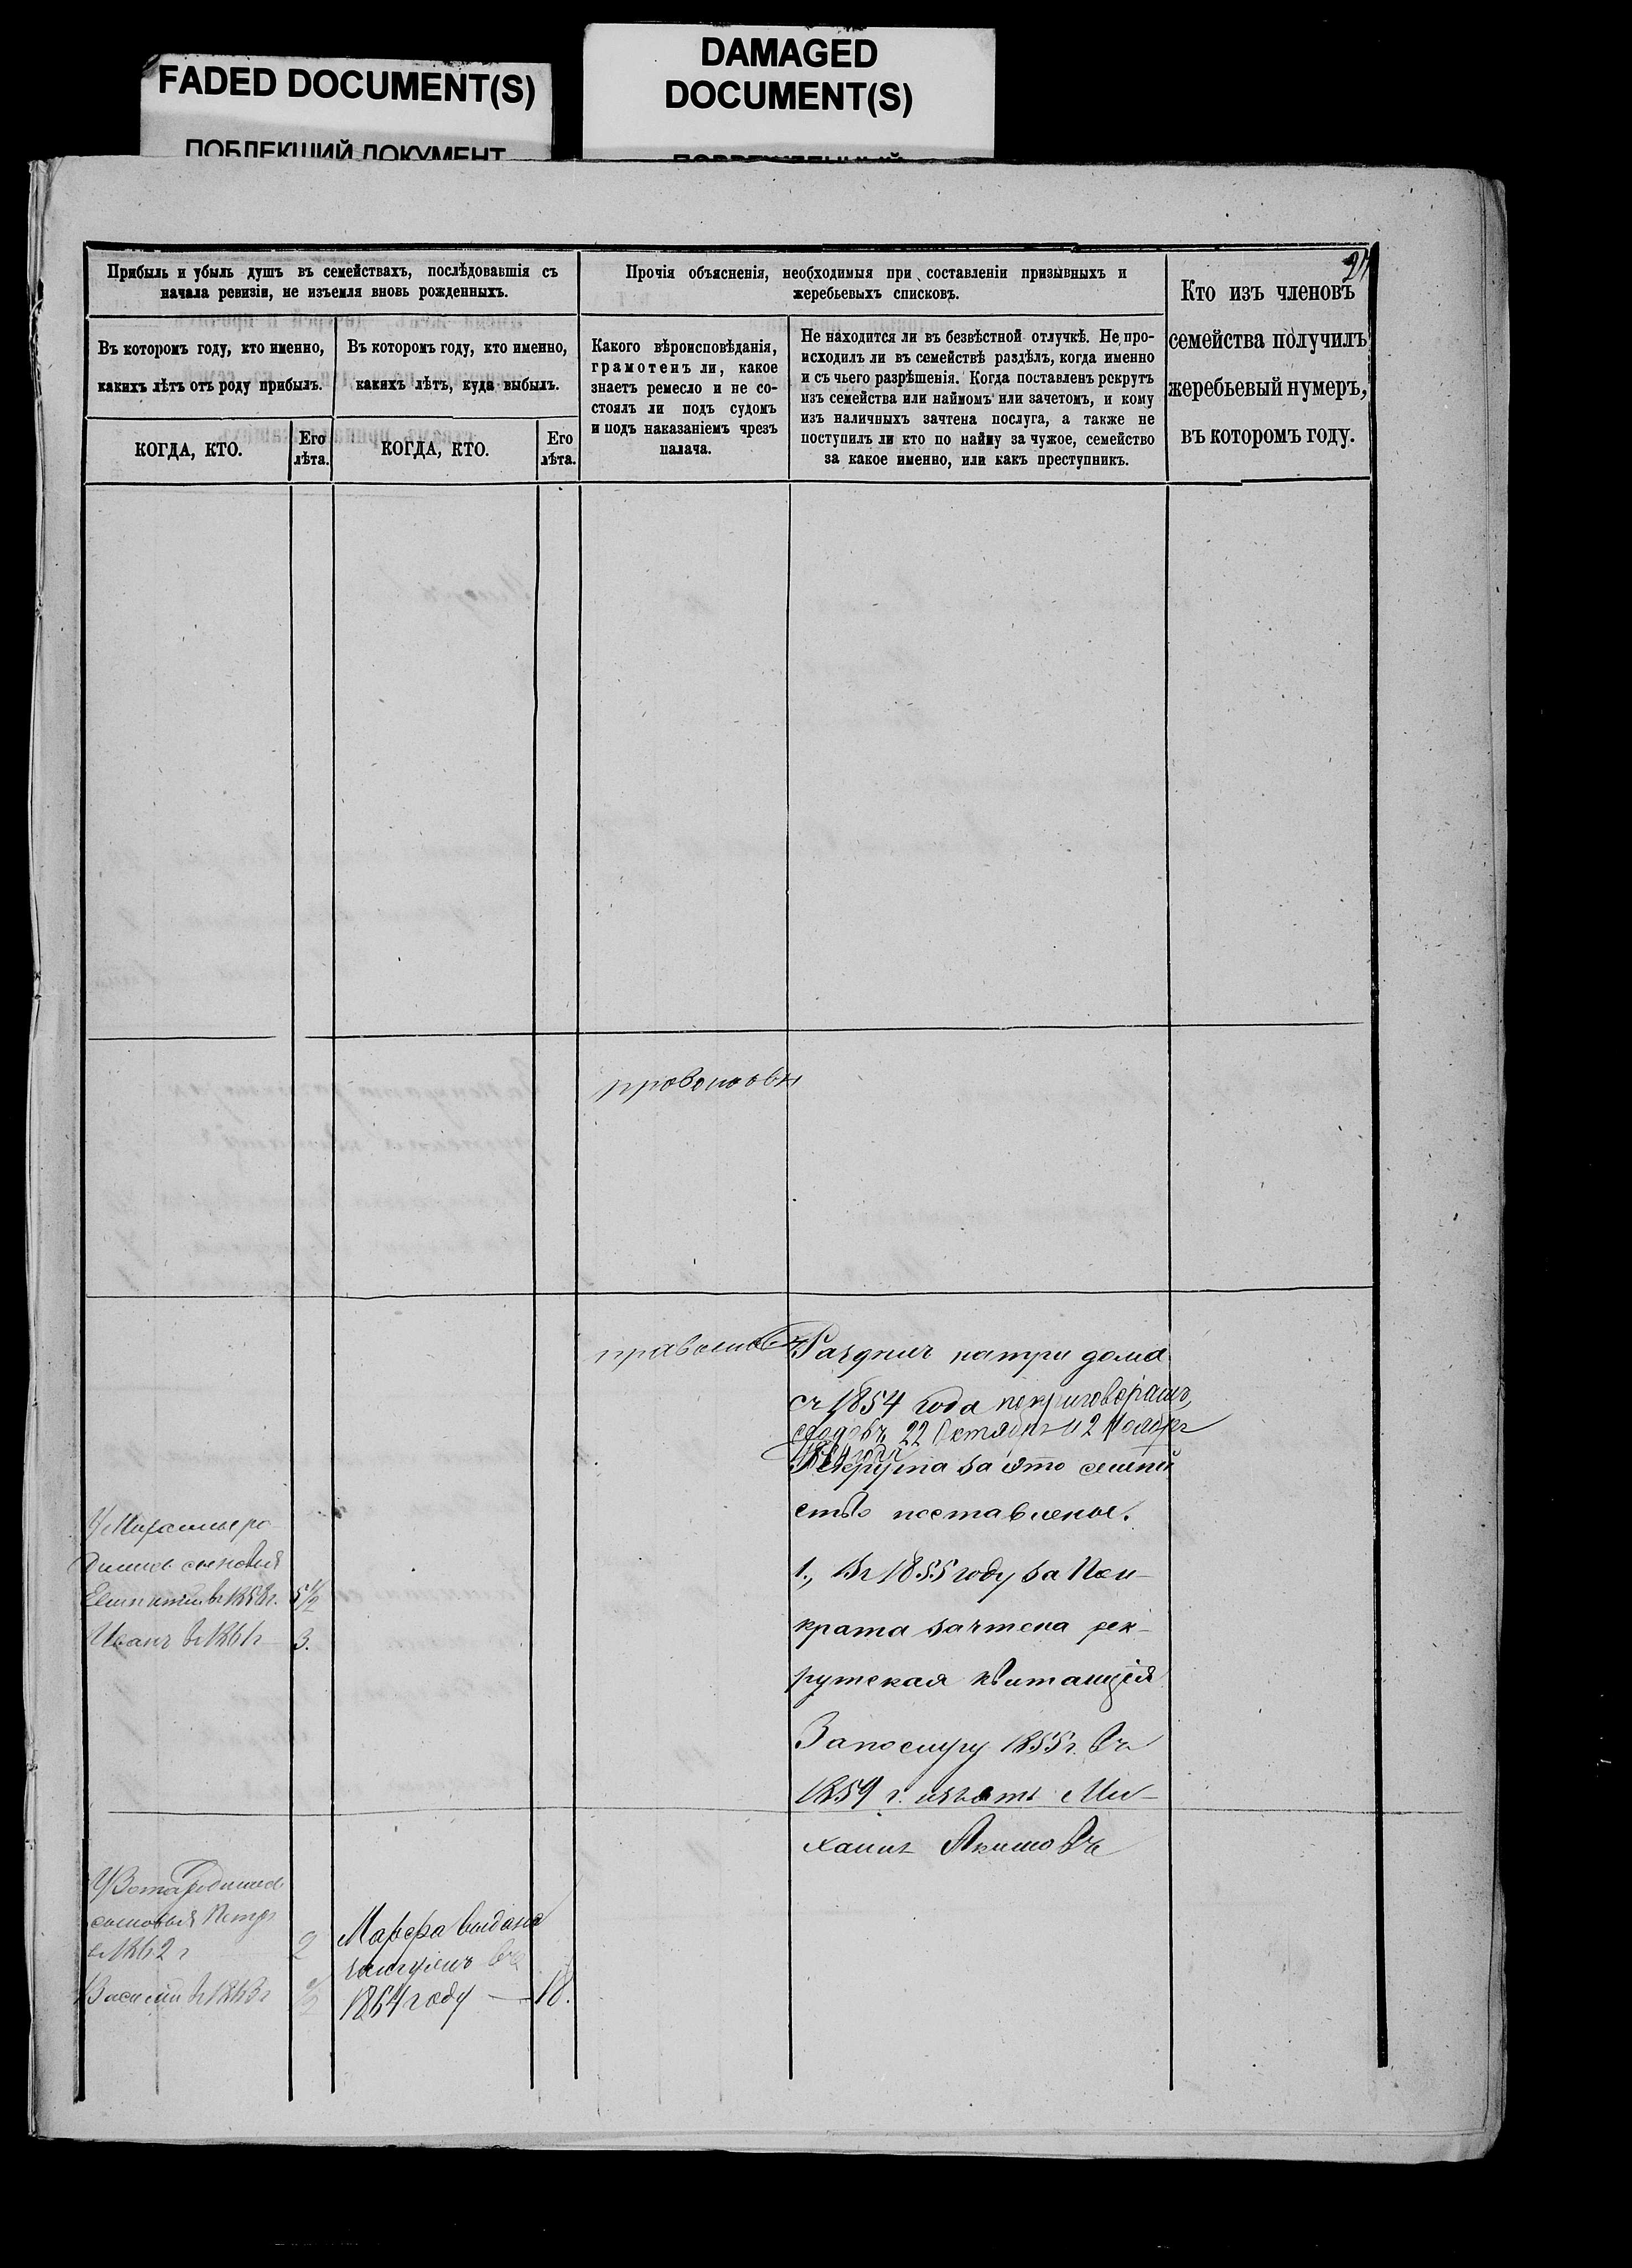 FADED DOCUMENT(S)
ПОБЛЕКШИЙ ДОКУМЕНТ
DAMAGED
DOCUMENT(S)
24
Прибыль и убыль душъ въ семействахъ, послѣдовавшія съ
начала ревизіи, не изъемля вновь рожденныхъ.
Въ которомъ году, кто именно,
какихъ лѣтъ отъ роду прибылъ.
КОГДА, КТО.
Его
лѣта.
Въ которомъ году, кто именно,
какихъ лѣтъ, куда выбылъ.
КОГДА, КТО.
Его
лѣта.
Прочія объясненія, необходимыя при составленіи призывныхъ и
жеребьевыхъ списковъ.
Какого вѣроисповѣданія,
грамотенъ ли, какое
знаетъ ремесло и не со-
стоялъ ли подъ судомъ
и подъ наказаніемъ чрезъ
палача.
Не находится ли въ безвѣстной отлучкѣ. Не про-
исходилъ ли въ семействѣ раздѣлъ, когда именно
и съ чьего разрѣшенія. Когда поставленъ рекрутъ
изъ семейства или наймомъ или зачетомъ, и кому
изъ наличныхъ зачтена послуга, а также не
поступилъ ли кто по найму за чужое, семейство
за какое именно, или какъ преступникъ.
Кто изъ членовъ
семейства получилъ
жеребьевый нумеръ,
въ которомъ году.
православн
православн
на три дома
съ 1854 года по приговорамъ
сходовъ 22 Октября и 2 Ноября
1864 года
Рекрута за это семей
ство поставлены.
1., Въ 1855 году за Пан-
крата зачтена рек-
рутская квитанція
За послугу 1855 г. въ
1859 г. взятъ Ми-
хаилъ Якимовъ
дились сыновья
в 1858 г. 5 1/2
Иванъ в 1861 г 3.
родились
сыновья Петръ
в 1862 г 2
Василій в 1863 г
Марфа выдана
замужъ въ
1864 году — 18.